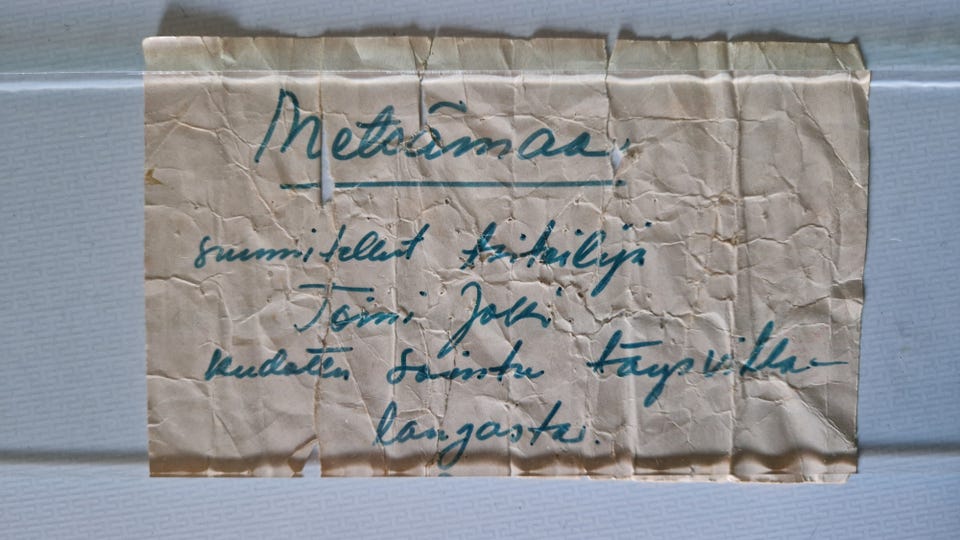 Metsämaa.
suunnitellut taiteilija
Toini
kudottu Sointu täysvilla-
langasta.